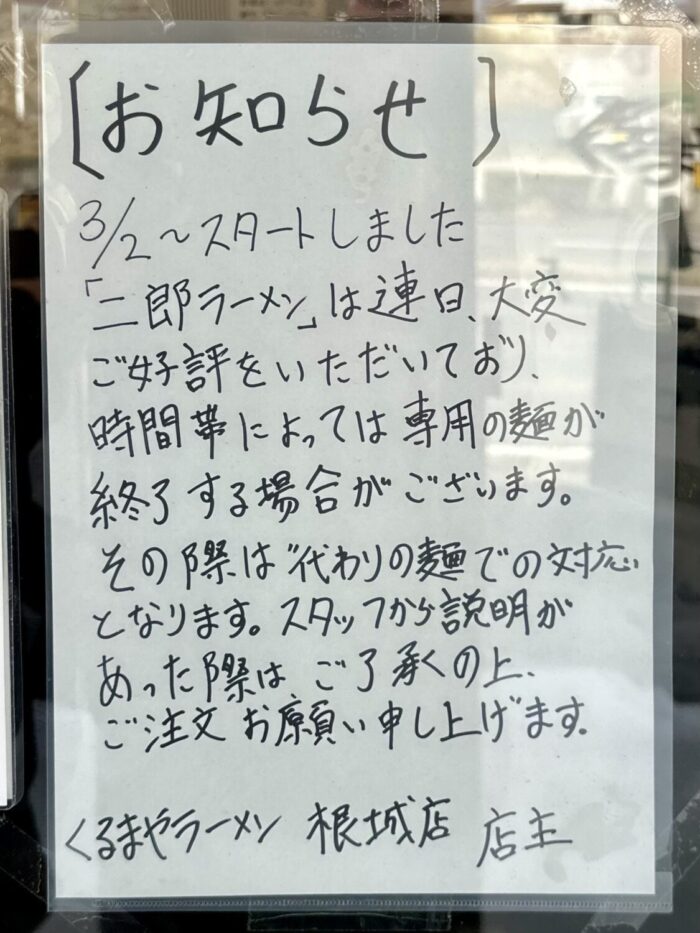 〔お知らせ〕
3/2〜スタートしました
「二郎ラーメン」は連日、大変
ご好評をいただいており、
時間帯によっては専用の麺が
終了する場合がございます。
その際は代わりの麺での対応
となります。スタッフから説明が
あった際はご了承くの上、
ご注文お願い申し上げます。
くるまやラーメン 根城店 店主